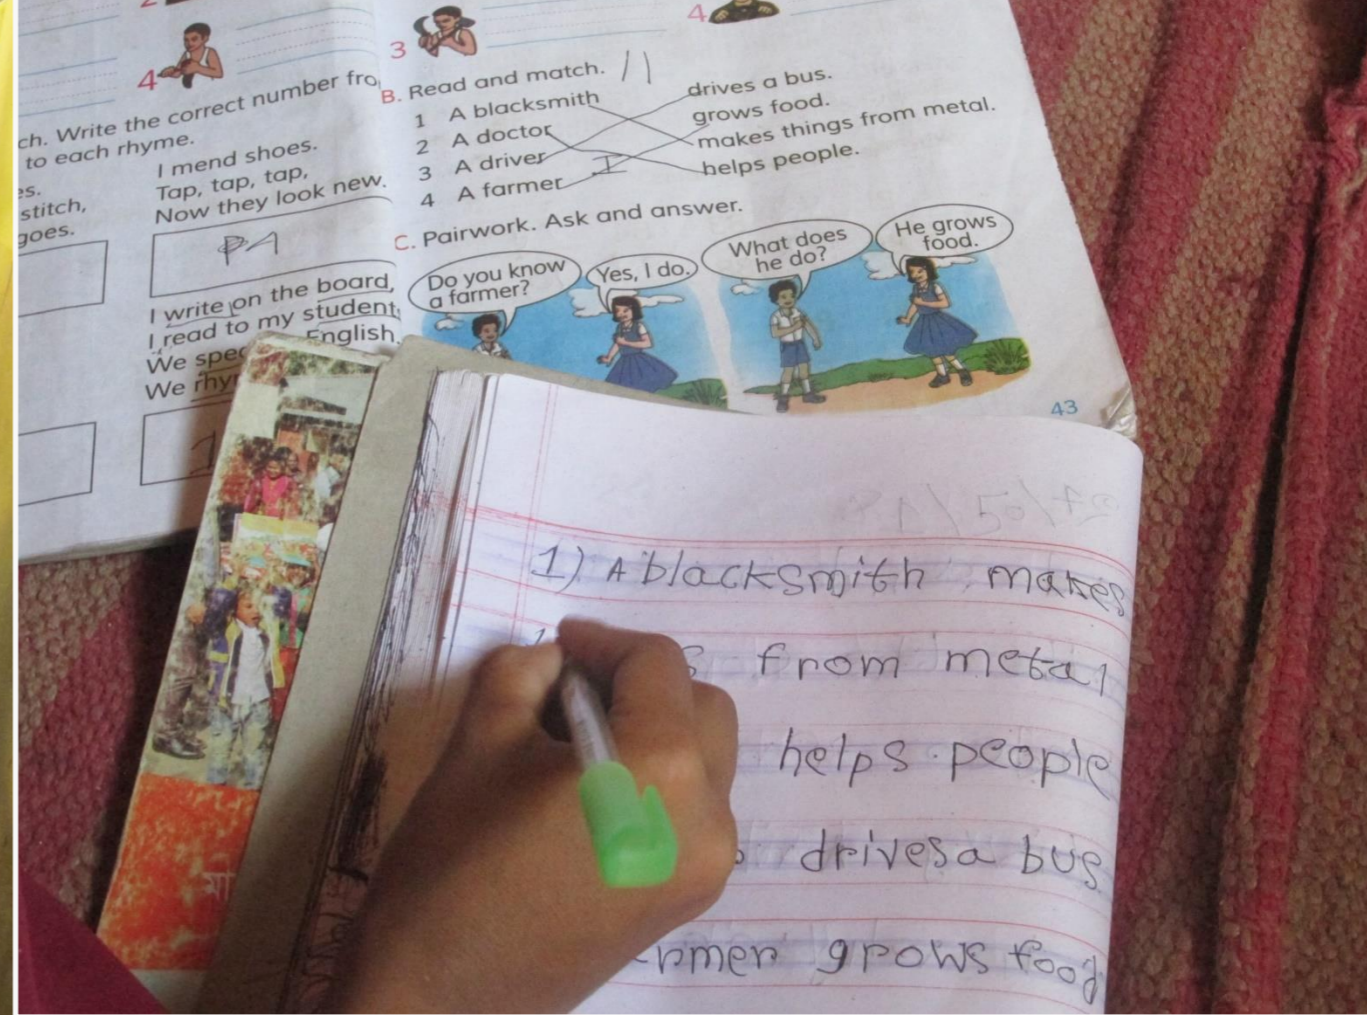 4
3
4
ch. Write the correct number fro
to each rhyme.
es.
stitch,
goes.
I mend shoes.
Tap, tap, tap,
Now they look new.
P4
I write on the board,
I read to my student
We spe
English.
We rhy
B. Read and match.
1 A blacksmith
2 A doctor
3 A driver
4 A farmer
drives a bus.
grows food.
makes things from metal.
helps people.
C. Pairwork. Ask and answer.
Do you know
a farmer?
Yes, I do.
What does
he do?
He grows
food.
43
1) A blacksmith makes
s from metal
helps people
drives a bus
rmer grows food
মা